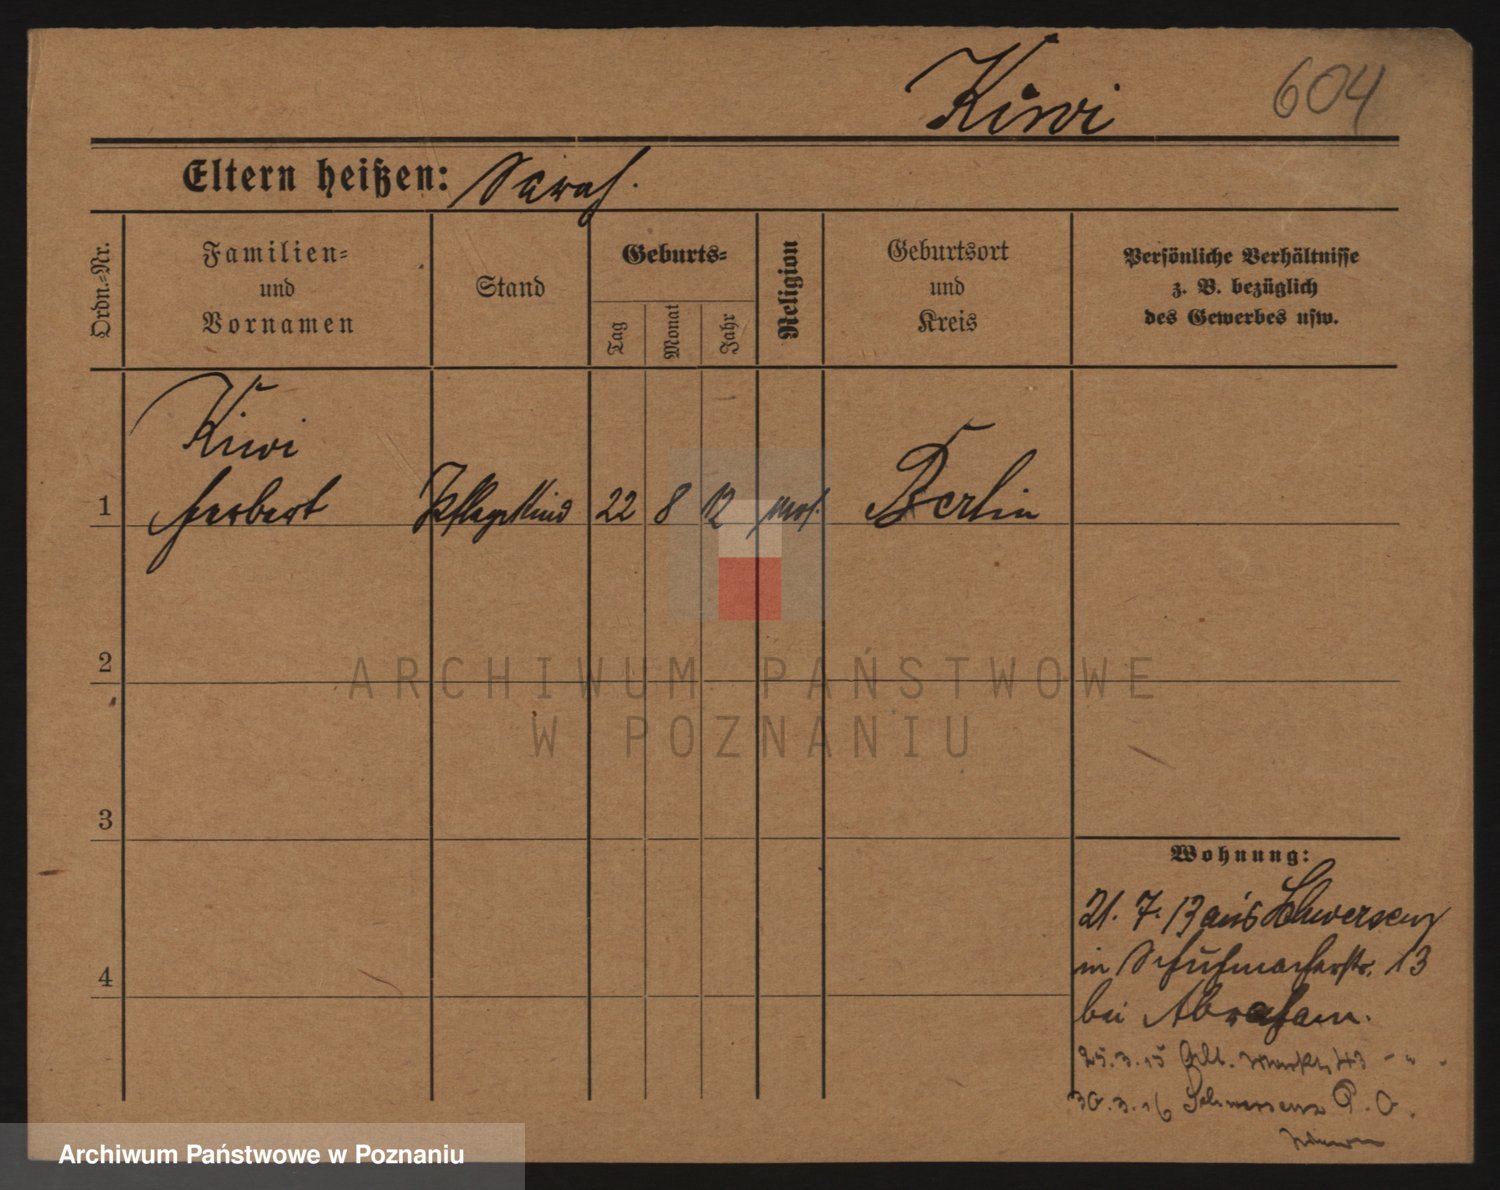 Kiwi 604
Eltern heißen: Sarah.
Ordn.-Nr.
Familien-
und
Vornamen
Stand
Geburts-
Tag
Monat
Jahr
Religion
Geburtsort
und
Kreis
Persönliche Verhältnisse
z. B. bezüglich
des Gewerbes usw.
Kiwi
1 Herbert Pflegekind 22 8 12 mos. Berlin
2
ARCHIWUM PAŃSTWOWE
W POZNANIU
3
Wohnung:
21. 7. 13 aus Schwersenz
in Schuhmacherstr. 13
4
bei Abraham.
25. 3. 15 Markt 43
30. 3. 16 Schwersenz P. O.
Archiwum Państwowe w Poznaniu